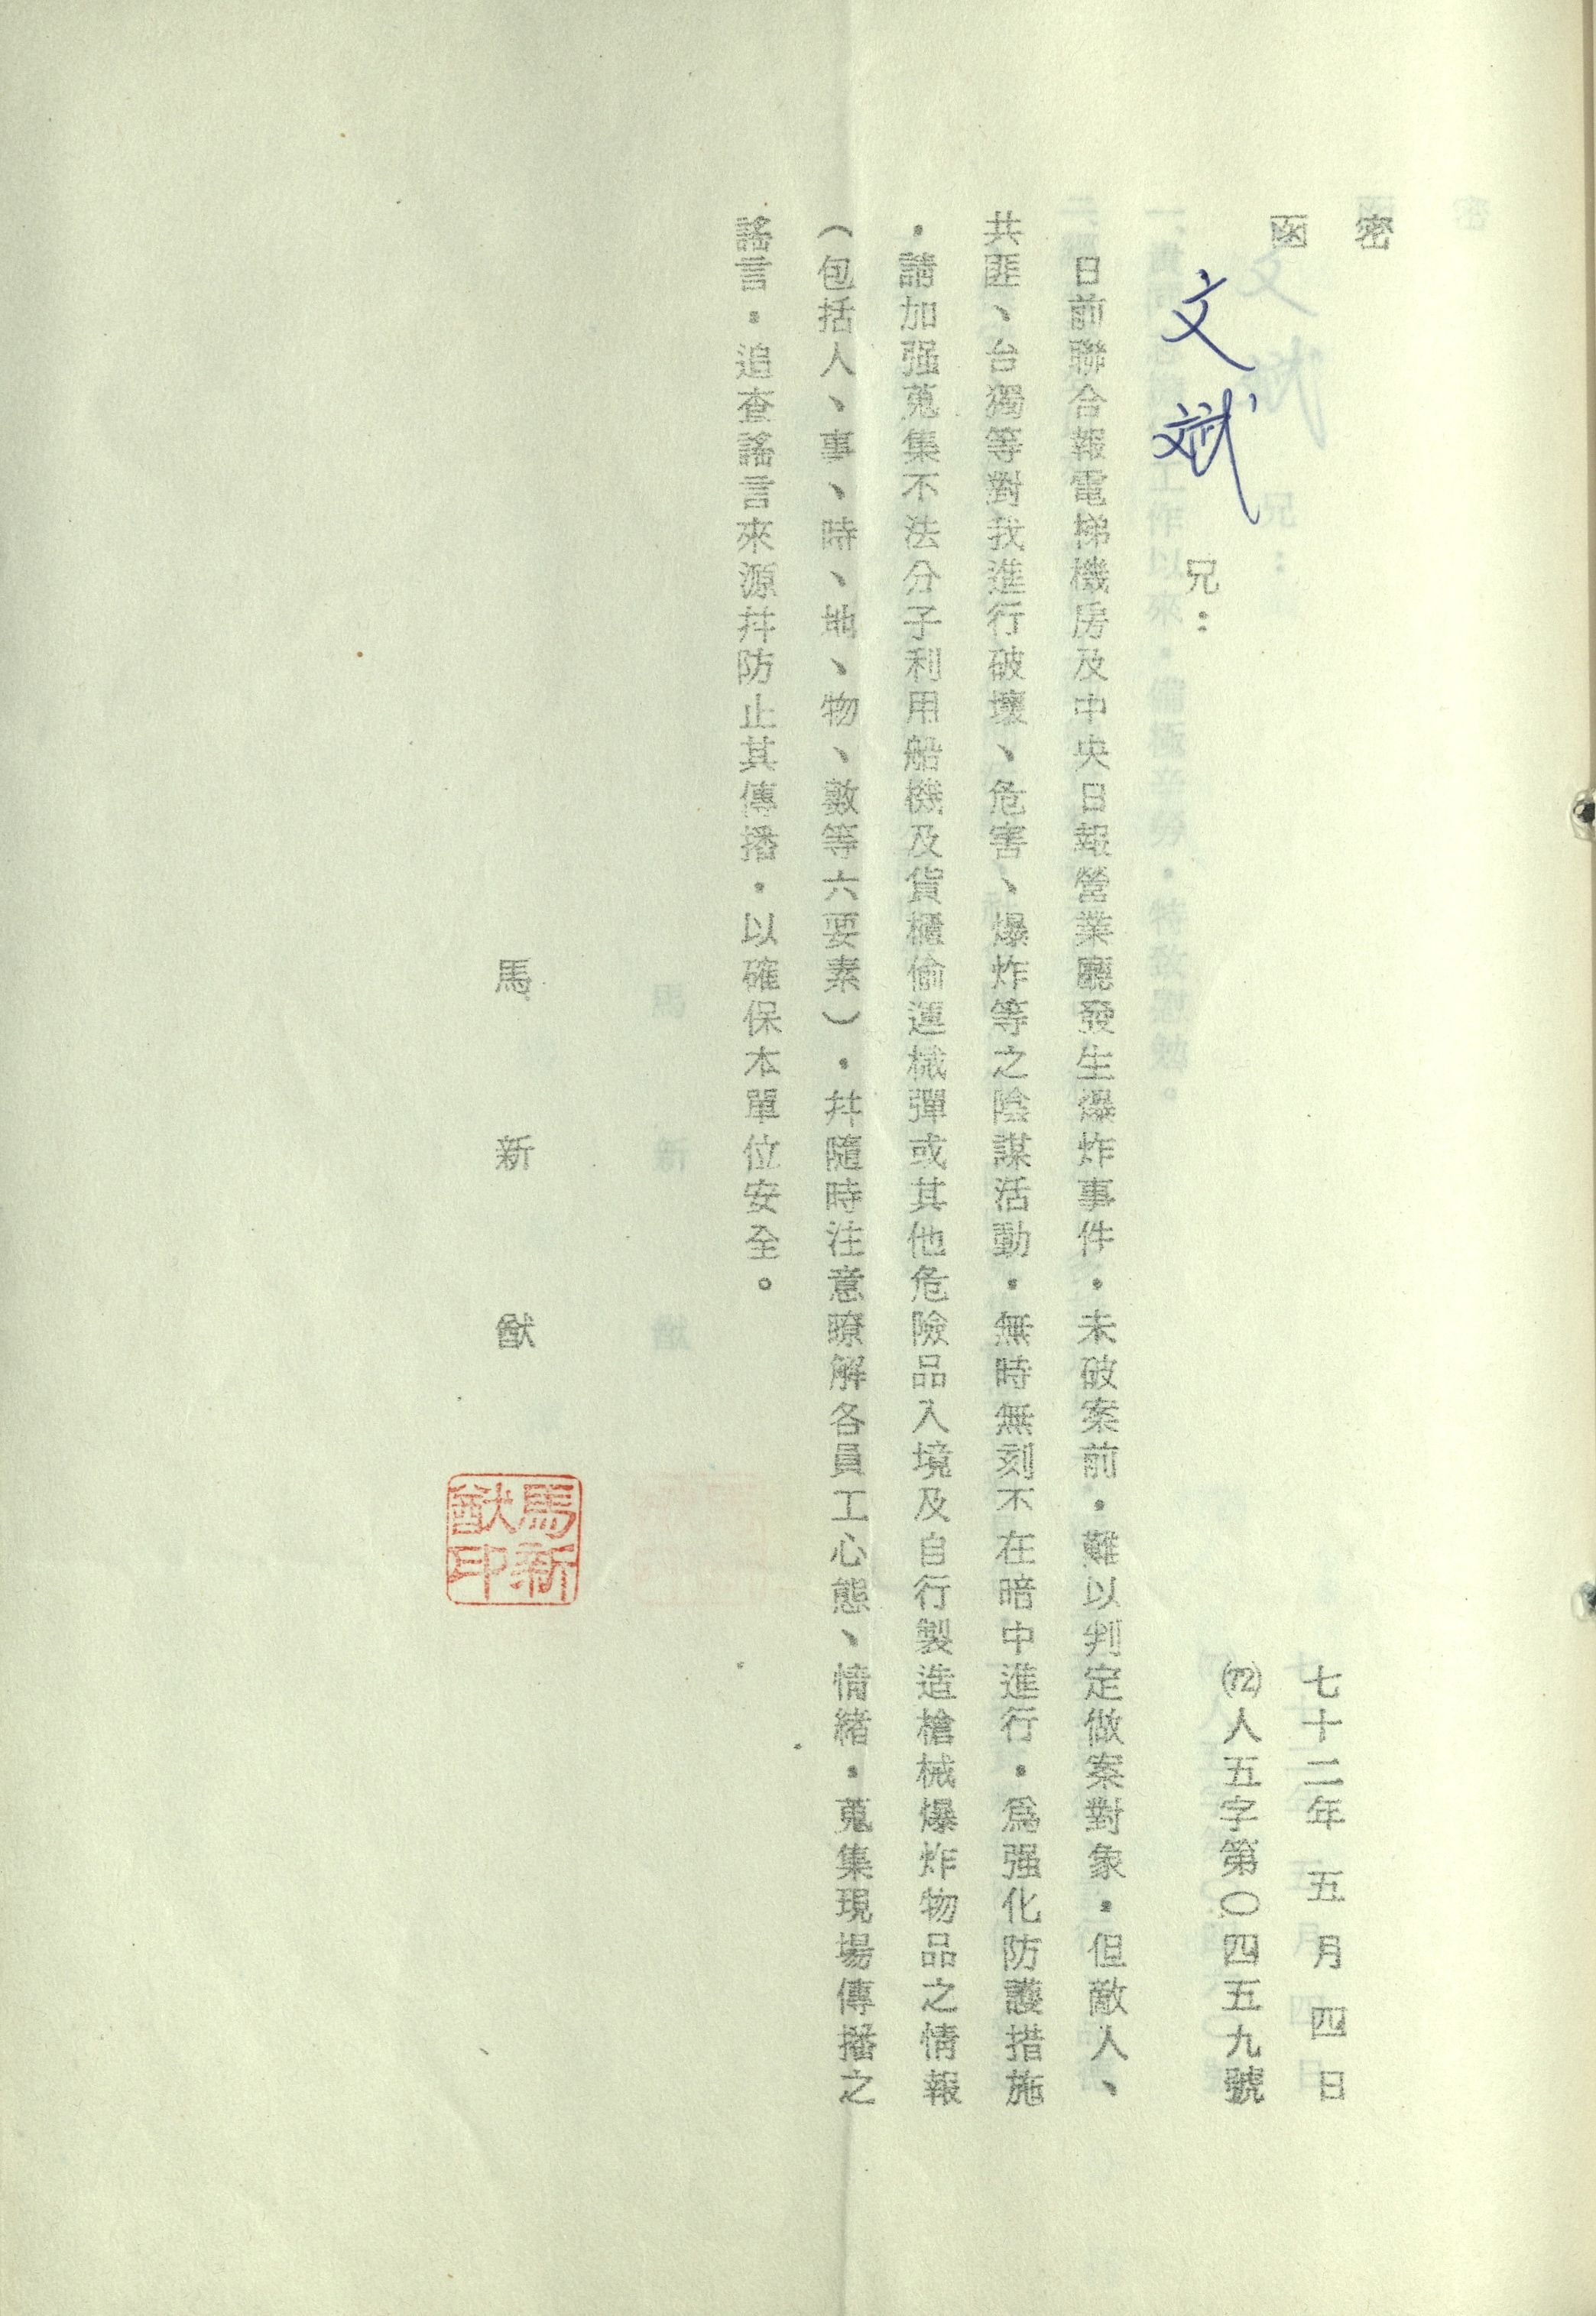 密
函
七十二年五月四日
(72)人五字第〇四五九號
文斌兄：
日前聯合報電梯機房及中央日報營業廳發生爆炸事件．未破案前．難以判定做案對象．但敵人、
共匪、台獨等對我進行破壞、危害、爆炸等之陰謀活動．無時無刻不在暗中進行．爲强化防護措施
．請加强蒐集不法分子利用船機及貨櫃偷運械彈或其他危險品入境及自行製造槍械爆炸物品之情報
（包括人、事、時、地、物、數等六要素）．幷隨時注意瞭解各員工心態、情緒．蒐集現場傳播之
謠言．追查謠言來源幷防止其傳播．以確保本單位安全。
馬新猷
馬新猷印